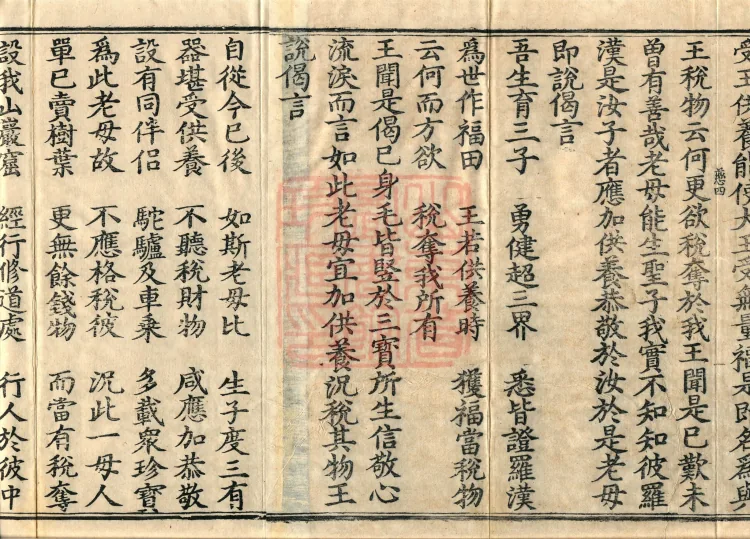 受王供養能使大王受無量福
王稅物云何更欲稅奪於我王聞是已歎未
曾有善哉老母能生聖子我實不知知彼羅
漢是汝子者應加供養恭敬於汝於是老母
即說偈言
吾生育三子 勇健超三界 悉皆證羅漢
為世作福田 王若供養時 獲福當稅物
云何而方欲 稅奪我所有
王聞是偈已身毛皆豎於三寶所生信敬心
流淚而言如此老母宜加供養況稅其物王
說偈言
自從今已後 如斯老母比 生子度三有
器堪受供養 不聽稅財物 咸應加恭敬
設有同伴侶 駝驢及車乘 多載眾珍寶
為此老母故 不應格稅彼 況此一母人
單已賣樹葉 更無餘錢物 而當有稅奪
設我山巖窟 經行修道處 行人於彼中